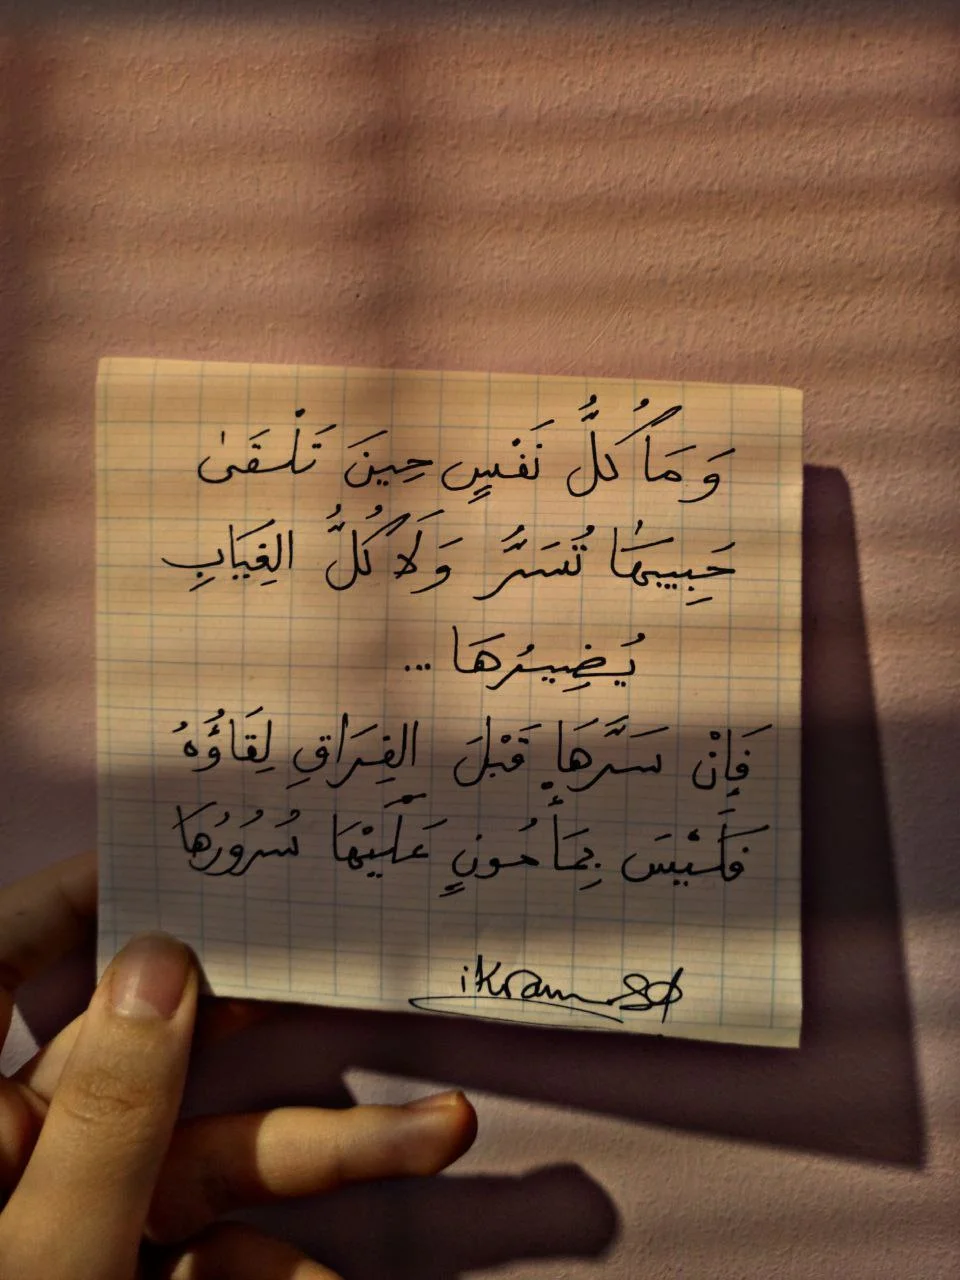 وَمَا كُلُّ نَفْسٍ حِينَ تَلْقَىٰ
حَبِيبَهَا تُسَرُّ وَلَا كُلُّ الغِيَابِ
يُضِيرُهَا ...
فَإِنْ سَرَّهَا قَبْلَ الفِرَاقِ لِقَاؤُهُ
فَلَيْسَ بِمَأْمُونٍ عَلَيْهَا سُرُورُهَا
ikram.sd